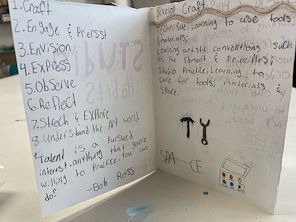 1. Craft
2. Engage & Persist
3. Envision
4. Express
5. Observe
6. Reflect
7. Strech & Explore
8. Understand the Art world
"Talent is a pursued
interest, anything that you're
willing to practice, you can
do"
-Bob Ross
Develop Craft
Technique: Learning to use tools
& materials;
Learning artistic conventions such
as the Element & Principles;
Studio Practice: Learning to
care for tools, materials, &
space.
SPA-CE